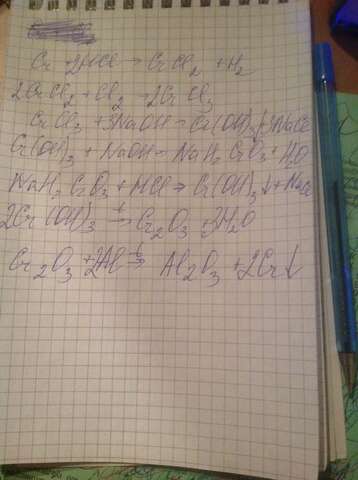 Cr + 2HCl → CrCl2 + H2
2CrCl2 + Cl2 → 2CrCl3
CrCl3 + 3NaOH → Cr(OH)3 + 3NaCl
Cr(OH)3 + NaOH → NaH2CrO3 + H2O
NaH2CrO3 + HCl → Cr(OH)3↓ + NaCl
2Cr(OH)3 t→ Cr2O3 + 3H2O
Cr2O3 + 2Al t→ Al2O3 + 2Cr↓